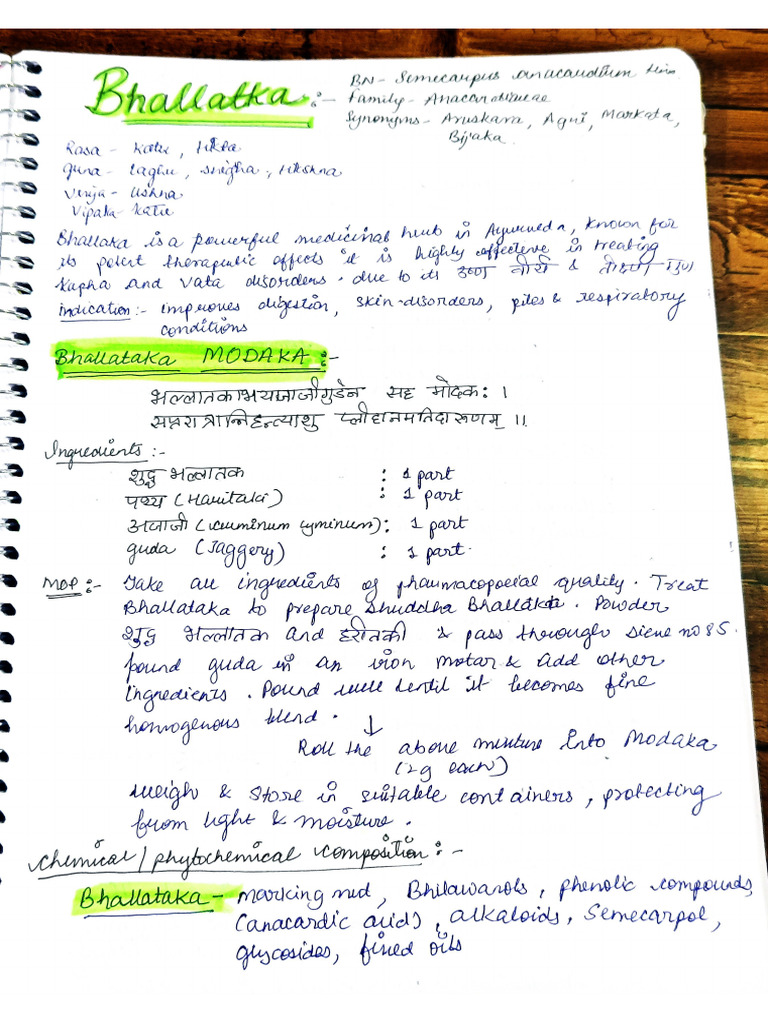 Bhallatka :-
BN - Semecarpus anacardium linn
Family - Anacardiaceae
Synonyms - Aruskara, Agni, Markata,
Bijaka.
Rasa - Katu, tikta
Guna - laghu, snigha, tikshna
Virja - Ushna
Vipaka - Katu
Bhallaka is a powerful medicinal herb in Ayurveda, known for
its potent therapeutic effects it is highly effective in treating
Kapha and Vata disorders. due to its उष्ण वीर्य & तीक्ष्ण गुण
indication :- improves digestion, skin-disorders, piles & respiratory
conditions
Bhallataka MODAKA :-
भल्लातकाभयाजाजीगुडेन सह मोदकः ।
सप्तरात्रान्निहन्त्याशु प्लीहानमतिदारुणम् ।।
Ingredients :-
शुद्ध भल्लातक : 1 part
पथ्य (Haritaki) : 1 part
अजाजी (cuminum cyminum) : 1 part
guda (Jaggery) : 1 part.
MOP :- Take all ingredients of pharmacopoeial quality. Treat
Bhallataka to prepare Shuddha Bhallatka. Powder
शुद्ध भल्लातक and हरीतकी & pass through sieve no 85.
pound guda in an iron motar & add other
ingredients. Pound well until it becomes fine
homogenous blend. ↓
Roll the above mixture into Modaka
(2g each)
weigh & store in suitable containers, protecting
from light & moisture.
Chemical / phytochemical composition :-
Bhallataka - marking nut, Bhilawanols, phenolic compounds,
(anacardic acids), alkaloids, Semecarpol,
glycosides, fixed oils